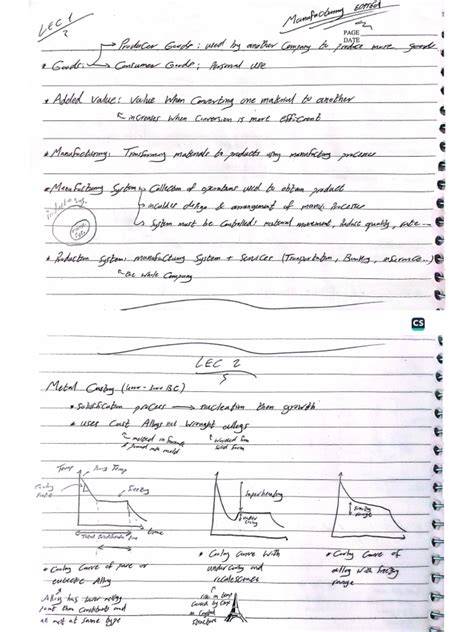 LEC 1
2
Manufacturing
PAGE
DATE
→ Producer Goods: used by another Company to produce more goods
* Goods → Consumer Goods; Personal use
* Added Value: Value When Converting one material to another
↖ increases When Conversion is more efficient
* Manufacturing: Transforming materials to products using manufacturing processes
* Manufacturing System → Collection of operations used to obtain product
→ includes design & arrangement of Processes
→ System must be Controlled: material movement, Product quality,
* Production System: manufacturing System + Services (Transportation, Banking, insurance...)
↖ the Whole Company
CS
LEC 2
5
Metal Casting
* Solidification process → nucleation then growth
* uses Cast Alloys not Wrought alloys
↖ melted in furnace
& poured into mold
↖ Worked from
Solid form
Temp
Pouring Temp
Cooling
rate
Freezing
time
Total Solidification time
Superheating
under
Cooling
Freezing
range
* Cooling Curve of pure or
eutectic Alloy
* Cooling Curve With
undercooling and
recalescence
* Cooling Curve of
alloy With freezing
range
structure